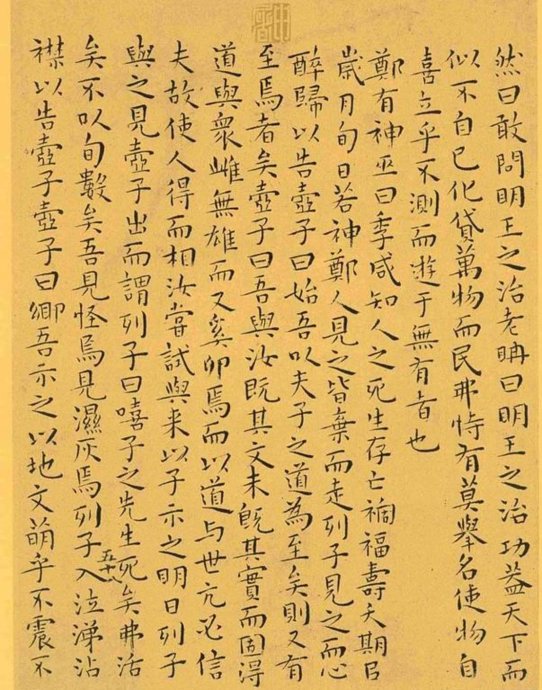 然曰敢問明王之治老聃曰明王之治功葢天下而
似不自已化貸萬物而民弗恃有莫舉名使物自
喜立乎不測而遊于無有者也
鄭有神巫曰季咸知人之死生存亡禍福壽夭期以
歲月旬日若神鄭人見之皆棄而走列子見之而心
醉歸以告壺子曰始吾以夫子之道為至矣則又有
至焉者矣壺子曰吾與汝既其文未既其實而固得
道與衆雌無雄而又奚卵焉而以道与世亢必信
夫故使人得而相汝嘗試與来以予示之明日列子
與之見壺子出而謂列子曰嘻子之先生死矣弗活
矣不以旬數矣吾見怪焉見濕灰焉列子入泣涕沾
五十八
襟以告壺子壺子曰鄉吾示之以地文萌乎不震不